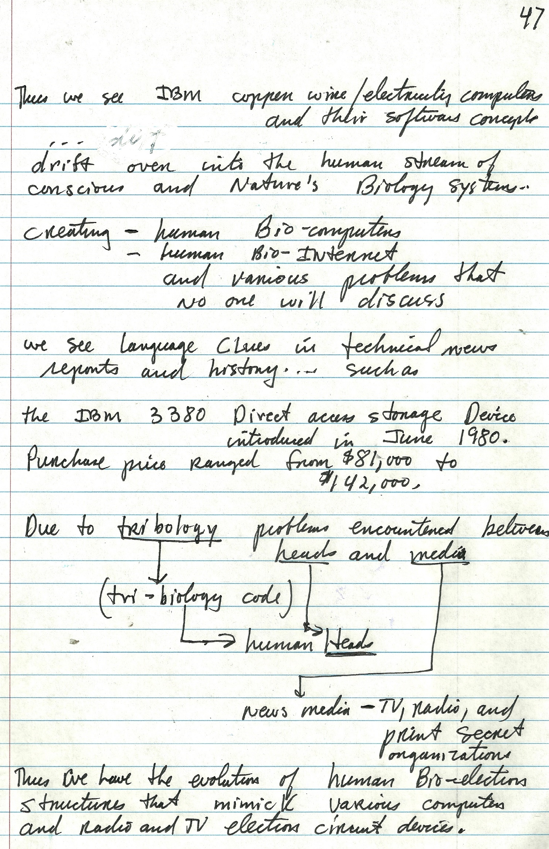 47
Thus we see IBM copper wire/electricity computers
and their software concepts
...
drift over into the human stream of
conscious and Nature's Biology systems..
creating - human Bio-computers
- human Bio-Internet
and various problems that
no one will discuss
we see language clues in technical news
reports and history.... such as
the IBM 3380 Direct access storage Device
introduced in June 1980.
Purchase price ranged from $81,000 to
$142,000.
Due to tribology problems encountered between
heads and media
(tri-biology code)
human Heads
news media - TV, radio, and
print secret
organizations
Thus we have the evolution of human Bio-electron
structures that mimick various computer
and radio and TV electron circuit devices.